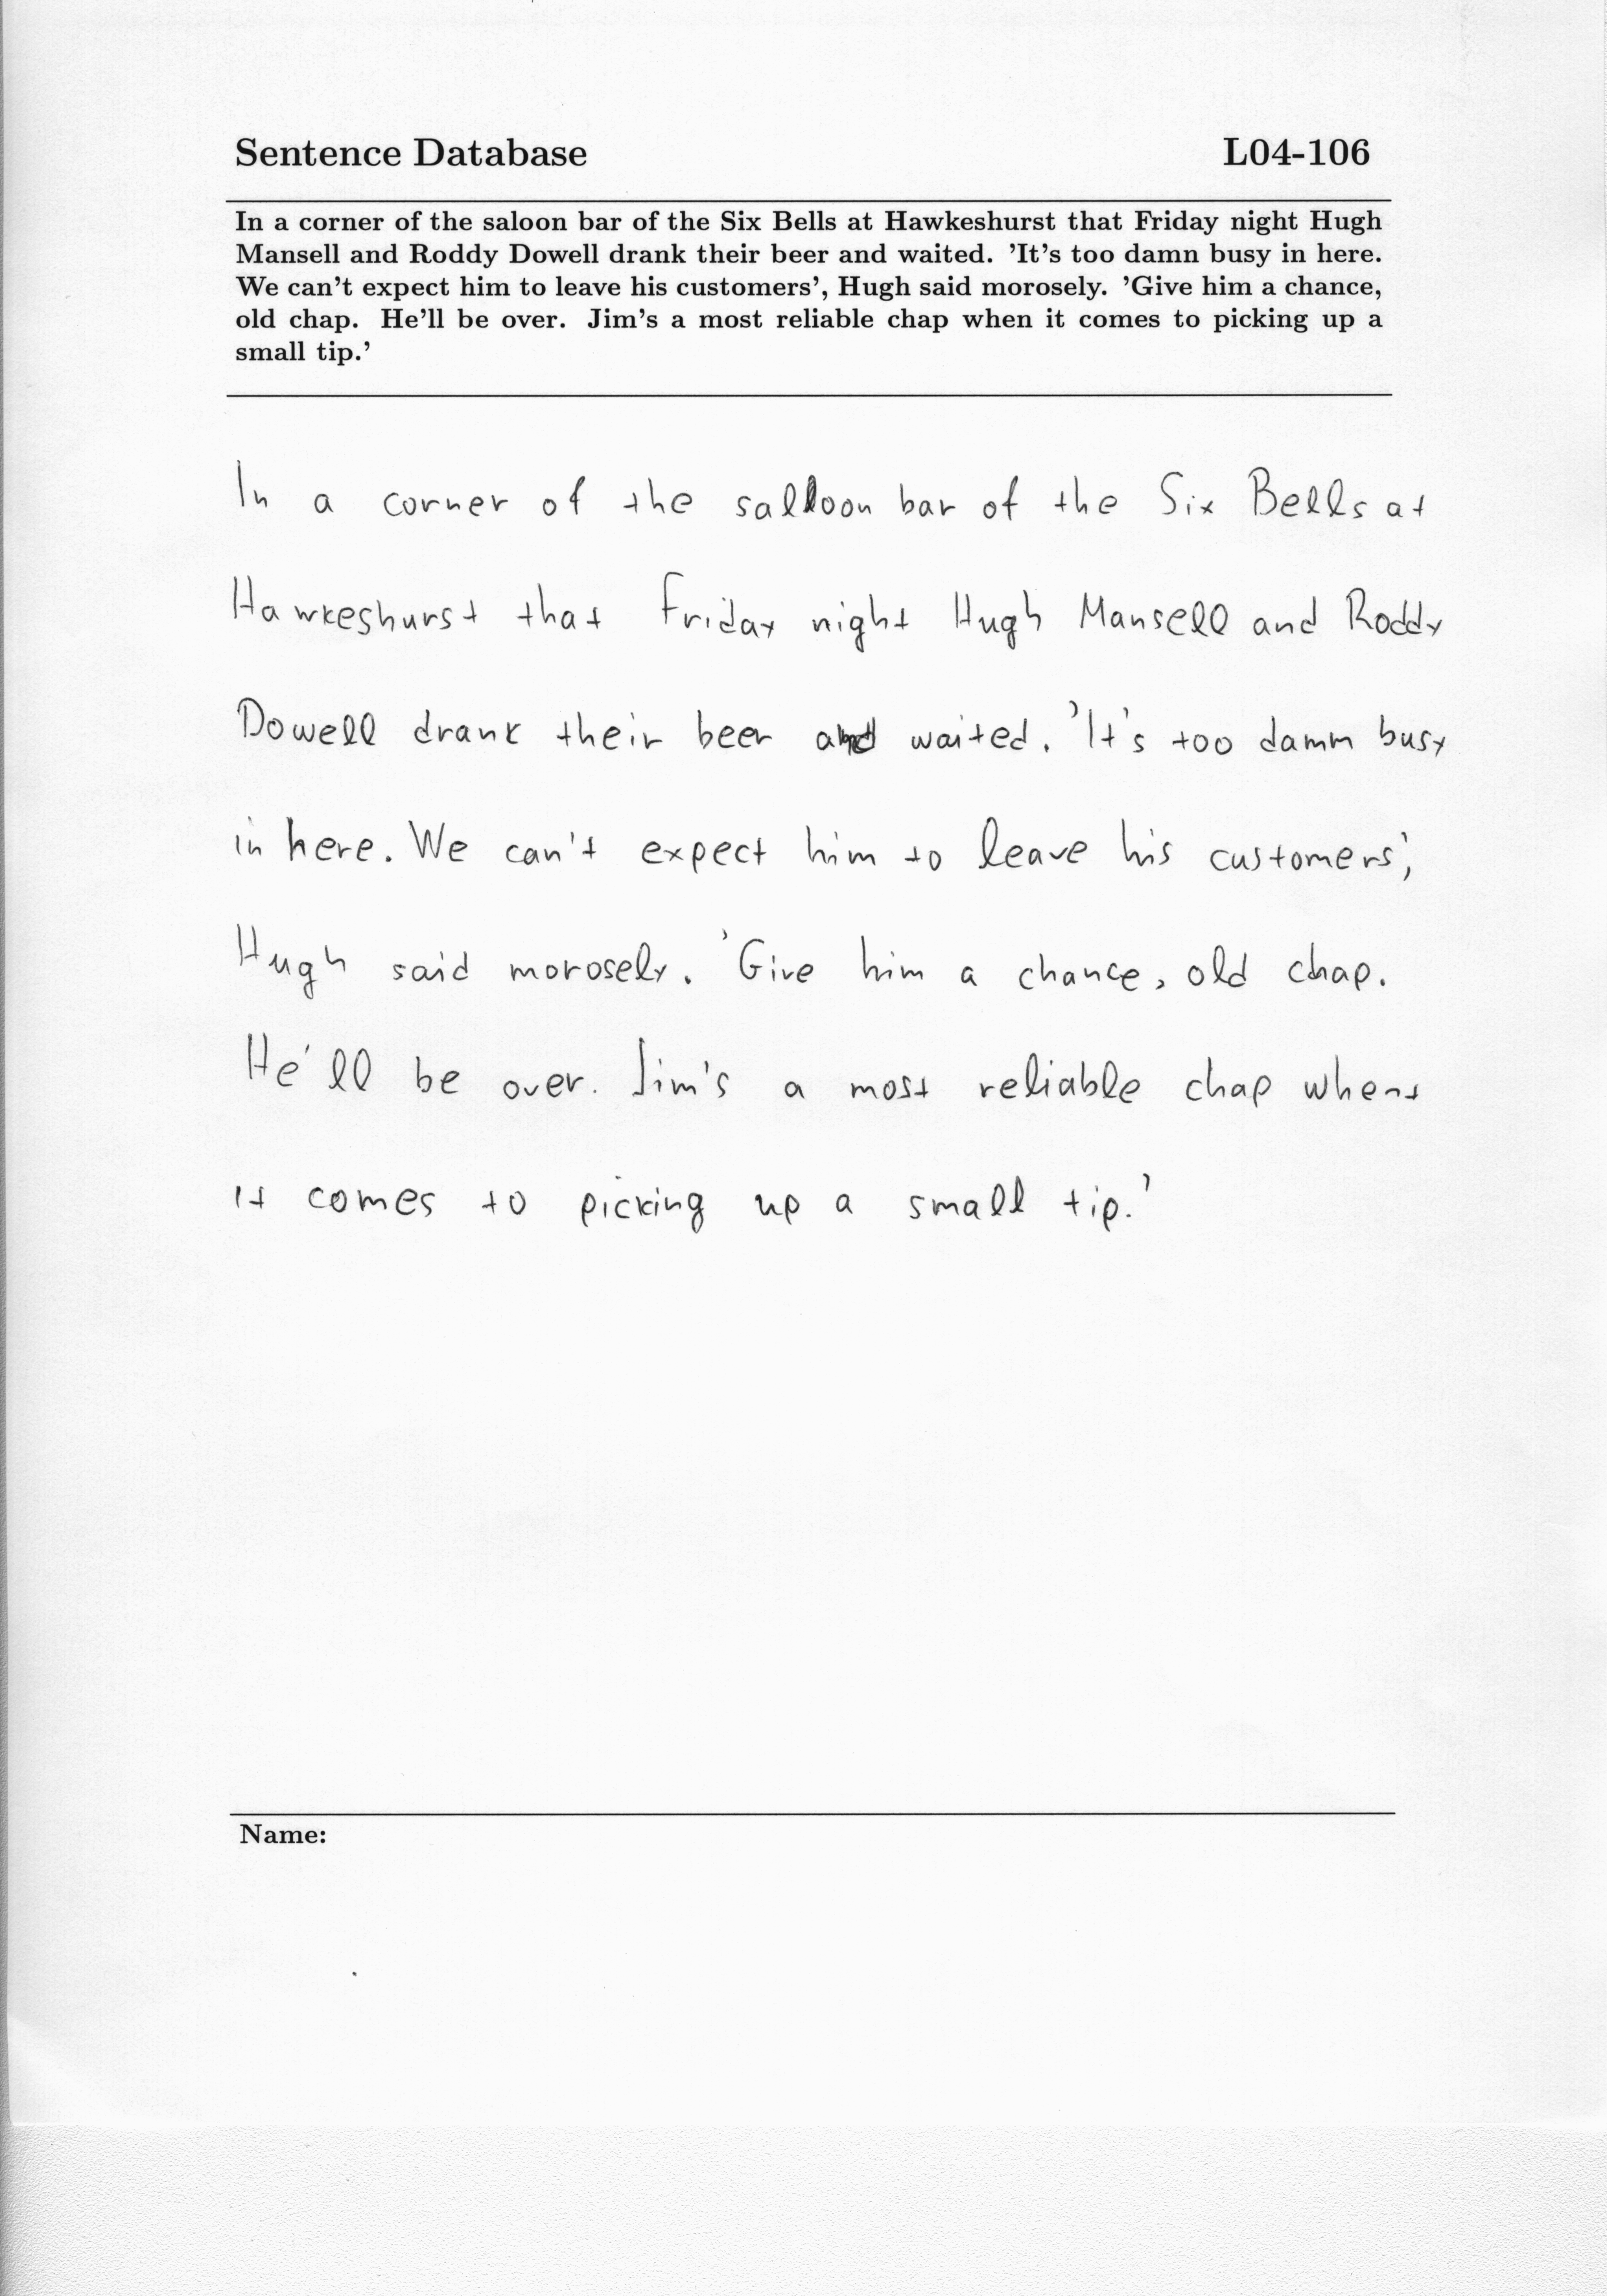 Sentence Database L04-106
In a corner of the saloon bar of the Six Bells at Hawkeshurst that Friday night Hugh
Mansell and Roddy Dowell drank their beer and waited. 'It's too damn busy in here.
We can't expect him to leave his customers', Hugh said morosely. 'Give him a chance,
old chap. He'll be over. Jim's a most reliable chap when it comes to picking up a
small tip.'
In a corner of the salloon bar of the Six Bells at
Hawkeshurst that Friday night Hugh Mansell and Roddy
Dowell drank their beer and waited. 'It's too damm busy
in here. We can't expect him to leave his customers',
Hugh said morosely. 'Give him a chance, old chap.
He'll be over. Jim's a most reliable chap whent
it comes to picking up a small tip.'
Name: